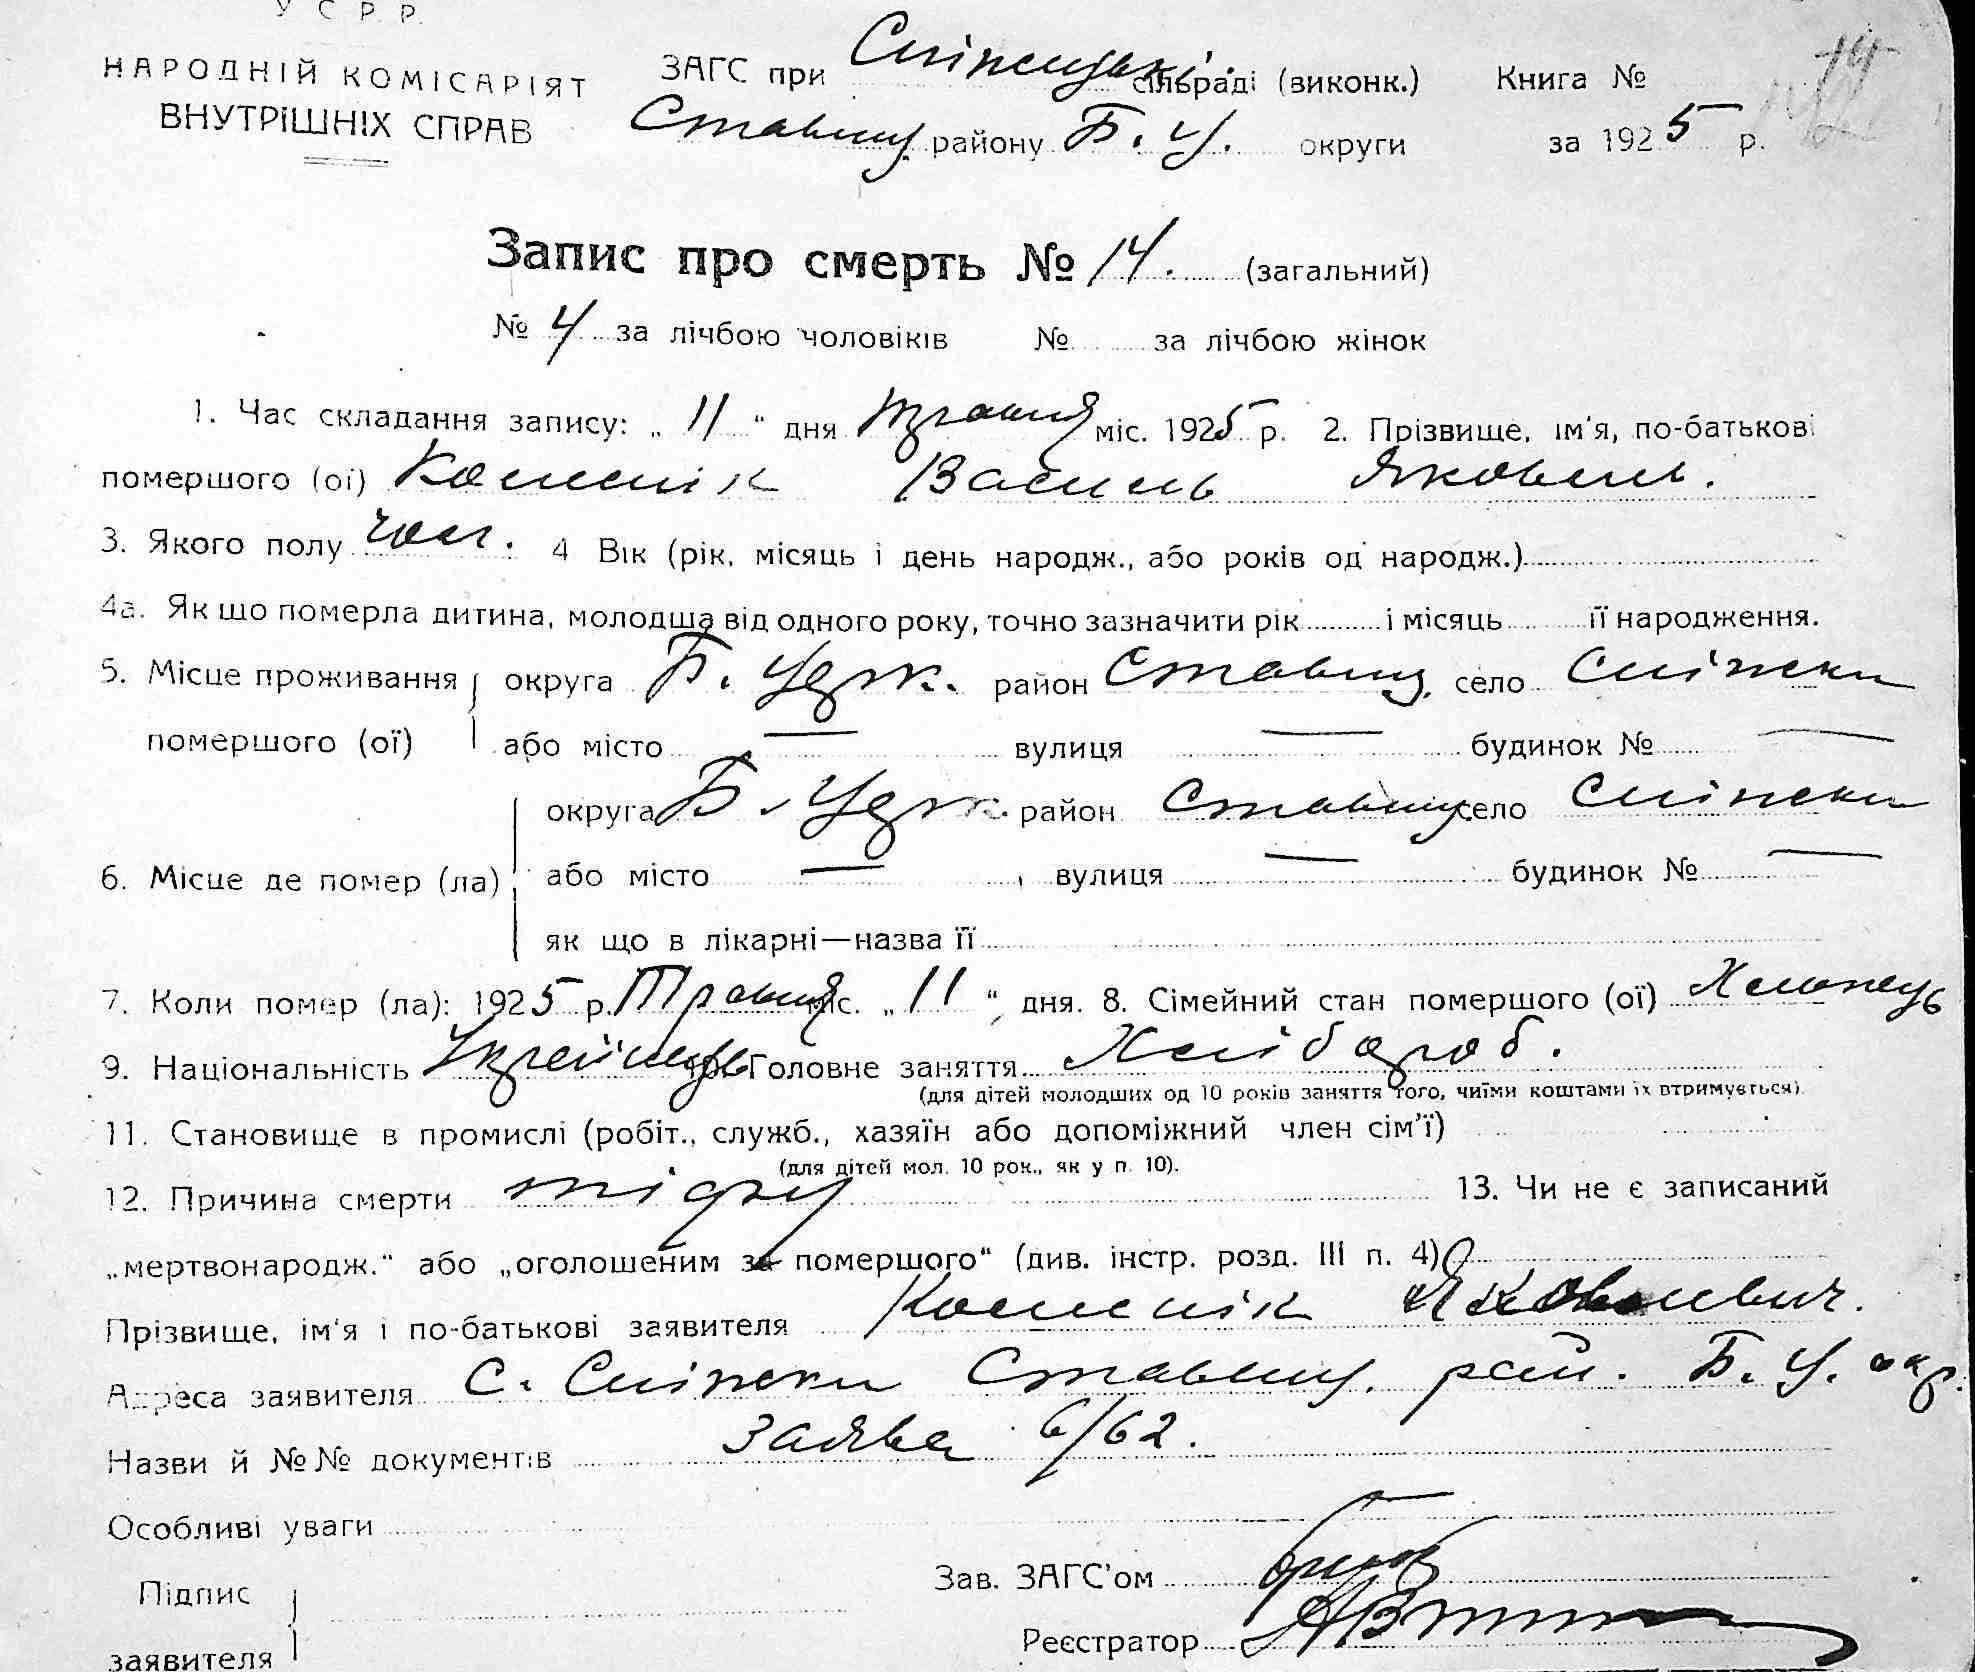 У С Р Р.
НАРОДНІЙ КОМІСАРІЯТ
ВНУТРІШНІХ СПРАВ
ЗАГС при сільраді (виконк.) Книга №
Ставищ. району Б. Ц. округи за 1925 р.
Запис про смерть № 14. (загальний)
№ 4 за лічбою чоловіків № за лічбою жінок
1. Час складання запису: „ 11 “ дня травня міс. 1925 р. 2. Прізвище, ім'я, по-батькові
помершого (ої) Василь Яковль.
3. Якого полу чол. 4 Вік (рік, місяць і день народж., або років од народж.)
4а. Як що померла дитина, молодша від одного року, точно зазначити рік і місяць її народження.
5. Місце проживання округа Б. Церк. район Ставищ. село Сніжки
помершого (ої) або місто — вулиця — будинок № —
округа Б. Церк. район Ставищ. село Сніжки
6. Місце де помер (ла) або місто — , вулиця — будинок № —
як що в лікарні—назва її
7. Коли помер (ла): 1925 р. Травня міс. „ 11 “ дня. 8. Сімейний стан помершого (ої) Хлопець
9. Національність Українець 10. Головне заняття Хлібороб.
(для дітей молодших од 10 років заняття того, чиїми коштами їх втримується).
11. Становище в промислі (робіт., служб., хазяїн або допоміжний член сім'ї)
(для дітей мол. 10 рок., як у п. 10).
12. Причина смерти 13. Чи не є записаний
„мертвонародж.“ або „оголошеним за помершого“ (див. інстр. розд. III п. 4)
Прізвище, ім'я і по-батькові заявителя Яковлевич.
Адреса заявителя с. Сніжки Ставищ. рай. Б. Ц. окр.
Назви й №№ документів Заява 6/62.
Особливі уваги
Зав. ЗАГС'ом
Підпис
заявителя
Реєстратор